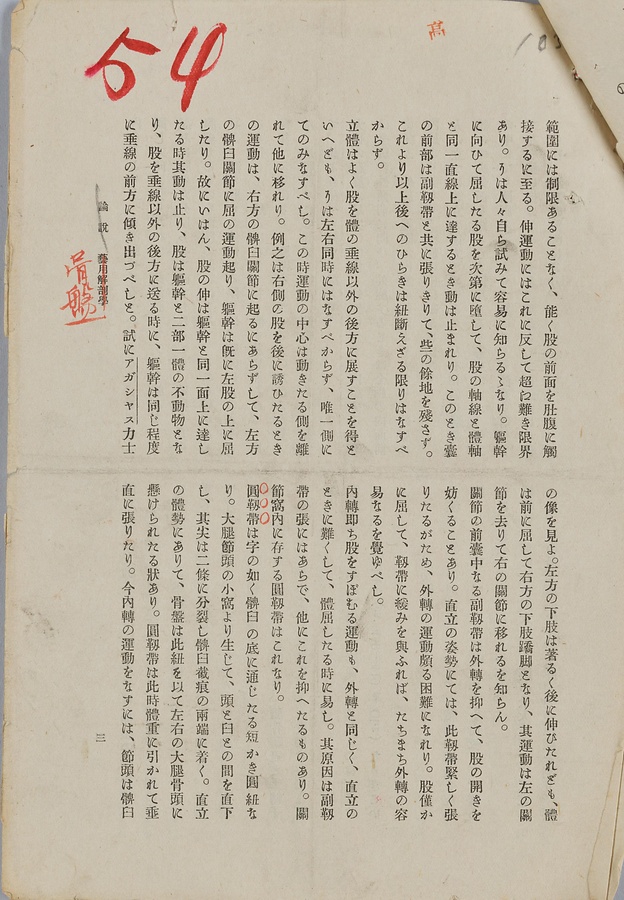 54
高
範圍には制限あることなく、能く股の前面を肚腹に觸
接するに至る。伸運動にはこれに反して超え難き限界
あり。そは人々自ら試みて容易に知らるゝなり。軀幹
に向ひて屈したる股を次第に墮して、股の軸線と體軸
と同一直線上に達するとき動は止まれり。このとき囊
の前部は副靱帶と共に張りきりて、些の餘地を殘さず。
これより以上後へのひらきは紐斷えざる限りはなすべ
からず。
立體はよく股を體の垂線以外の後方に展すことを得と
いへども、そは左右同時にはなすべからず、唯一側に
てのみなすべし。この時運動の中心は動きたる側を離
れて他に移れり。例之は右側の股を後に誘ひたるとき
の運動は、右方の髀臼關節に起るにあらずして、左方
の髀臼關節に屈の運動起り、軀幹は旣に左股の上に屈
したり。故にいはん、股の伸は軀幹と同一面上に達し
たる時其動は止り、股は軀幹と二部一體の不動物とな
り、股を垂線以外の後方に送る時に、軀幹は同じ程度
に垂線の前方に傾き出づべしと。試にアガシヤス力士
の像を見よ。左方の下肢は著るく後に伸ひたれども、體
は前に屈して右方の下肢蹻脚となり、其運動は左の關
節を去りて右の關節に移れるを知らん。
關節の前囊中なる副靱帶は外轉を抑へて、股の開きを
妨くることあり。直立の姿勢にては、此靱帶緊しく張
りたるがため、外轉の運動頗る困難になれり。股僅か
に屈して、靱帶に緩みを與ふれば、たちまち外轉の容
易なるを覺ゆべし。
內轉即ち股をすぼむる運動も、外轉と同じく、直立の
ときに難くして、體屈したる時に易し。其原因は副靱
帶の張にはあらで、他にこれを抑へたるものあり。關
節窩內に存する圓靱帶はこれなり。
圓靱帶は字の如く髀臼の底に通じたる短かき圓紐な
り。大腿節頭の小窩より生じて、頭と臼との間を直下
し、其尖は二條に分裂し髀臼截痕の兩端に着く。直立
の體勢にありて、骨盤は此紐を以て左右の大腿骨頭に
懸けられたる狀あり。圓靱帶は此時體重に引かれて垂
直に張りたり。今內轉の運動をなすには、節頭は髀臼
論說 藝用解剖學
骨盤
三